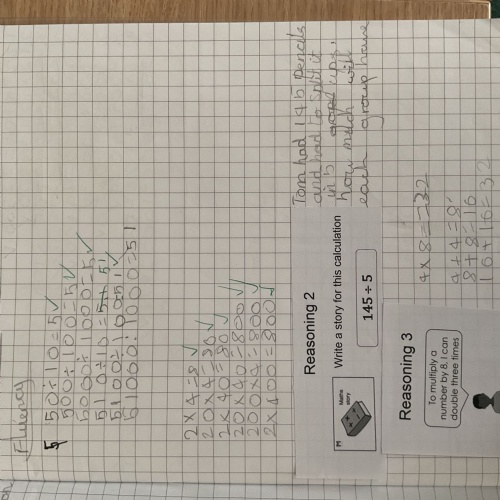 Fluency
50÷10=5
500÷100=5
5000÷1000=5
510÷10=51
5100÷100=51
51000÷1000=51
2×4=8
20×4=80
2×40=80
20×40=800
200×4=800
2×400=800
Reasoning 2
Write a story for this calculation
Maths story
145 ÷ 5
Tom had 145 pencils
and had to split it
in 5 ups,
how much will
each group have
Reasoning 3
To multiply a
number by 8, I can
double three times
4×8=32
4+4=8
8+8=16
16+16=32